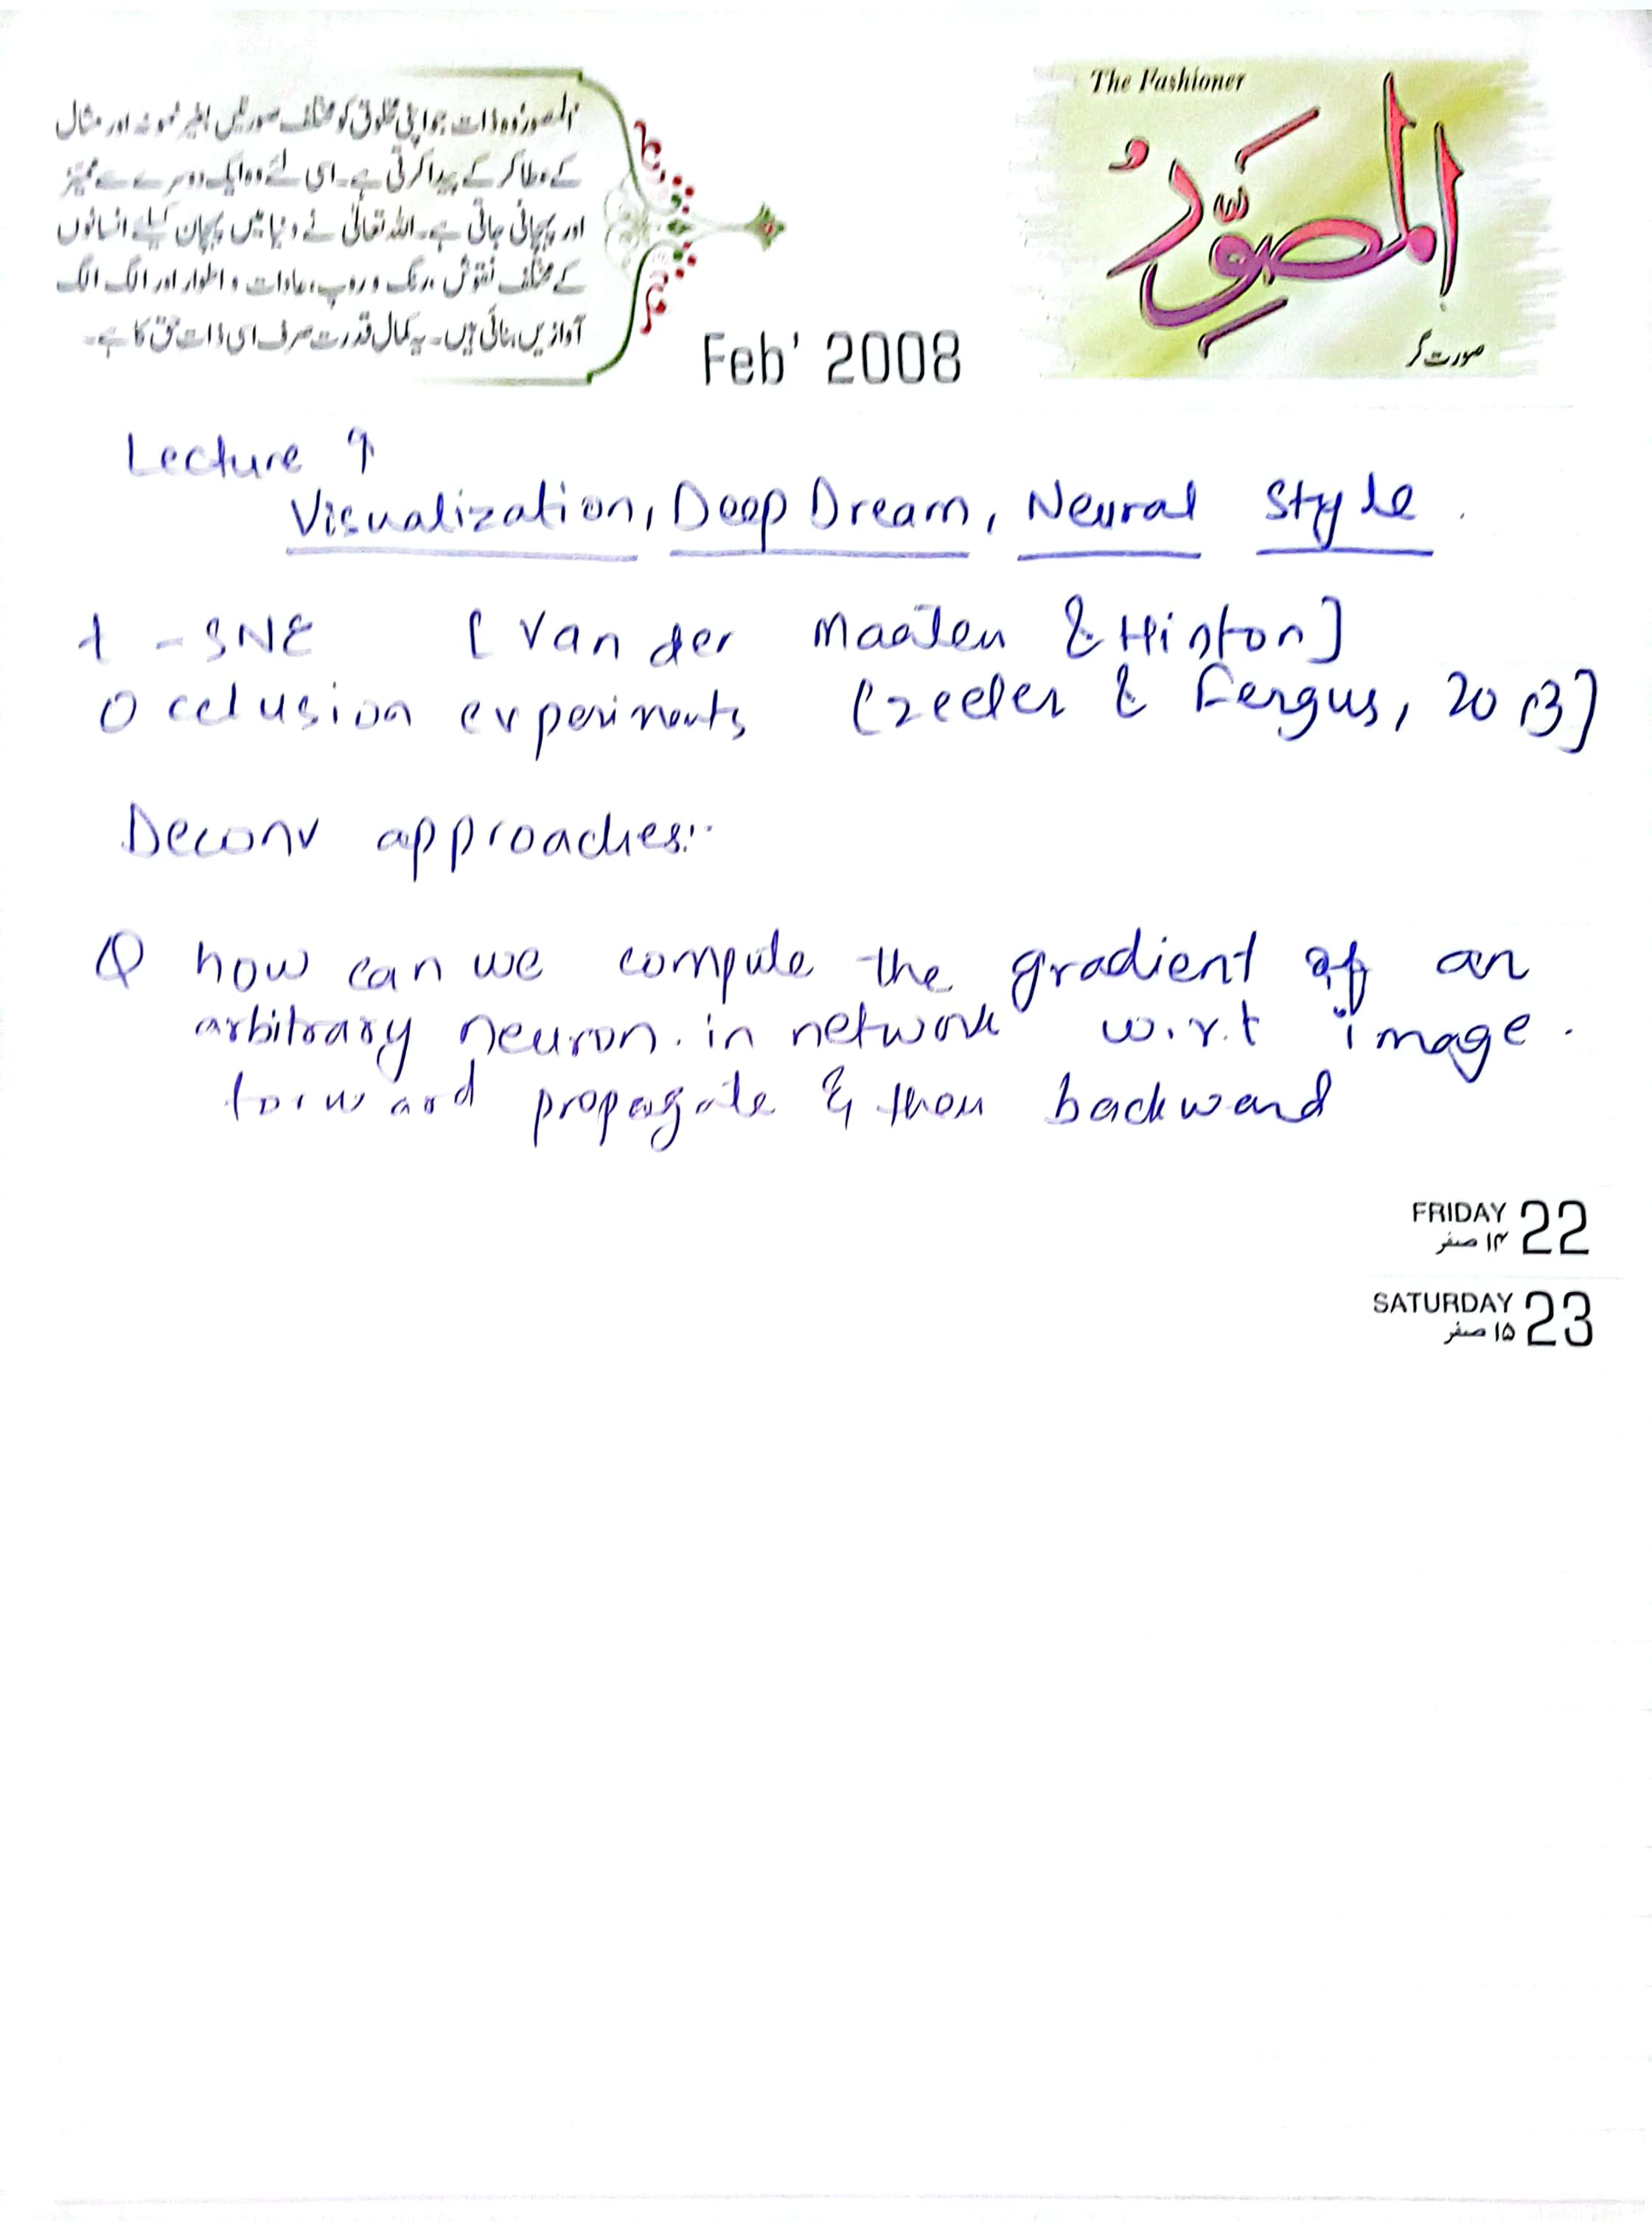 المصور وہ ذات جو اپنی مخلوق کو مختلف صورتیں بغیر نمونہ اور مثال
کے عطا کر کے پیدا کرتی ہے۔ اسی لئے وہ ایک دوسرے سے ممیز
اور پہچانی جاتی ہے۔ اللہ تعالیٰ نے دنیا میں پہچان کیلئے انسانوں
کے مختلف نقوش، رنگ و روپ، عادات و اطوار اور الگ الگ
آوازیں بنائی ہیں۔ یہ کمال قدرت صرف اسی ذات حق کا ہے۔
Feb' 2008
The Fashioner
المصوِّرُ
صورت گر
Lecture 9
Visualization, Deep Dream, Neural Style.
t-SNE [Van der Maaten & Hinton]
Occlusion experiments [Zeeler & Fergus, 2013]
Deconv approaches:-
Q how can we compute the gradient of an
arbitrary neuron. in network w.r.t image.
forward propagate & then backward
FRIDAY 22
۱۴ صفر
SATURDAY 23
۱۵ صفر